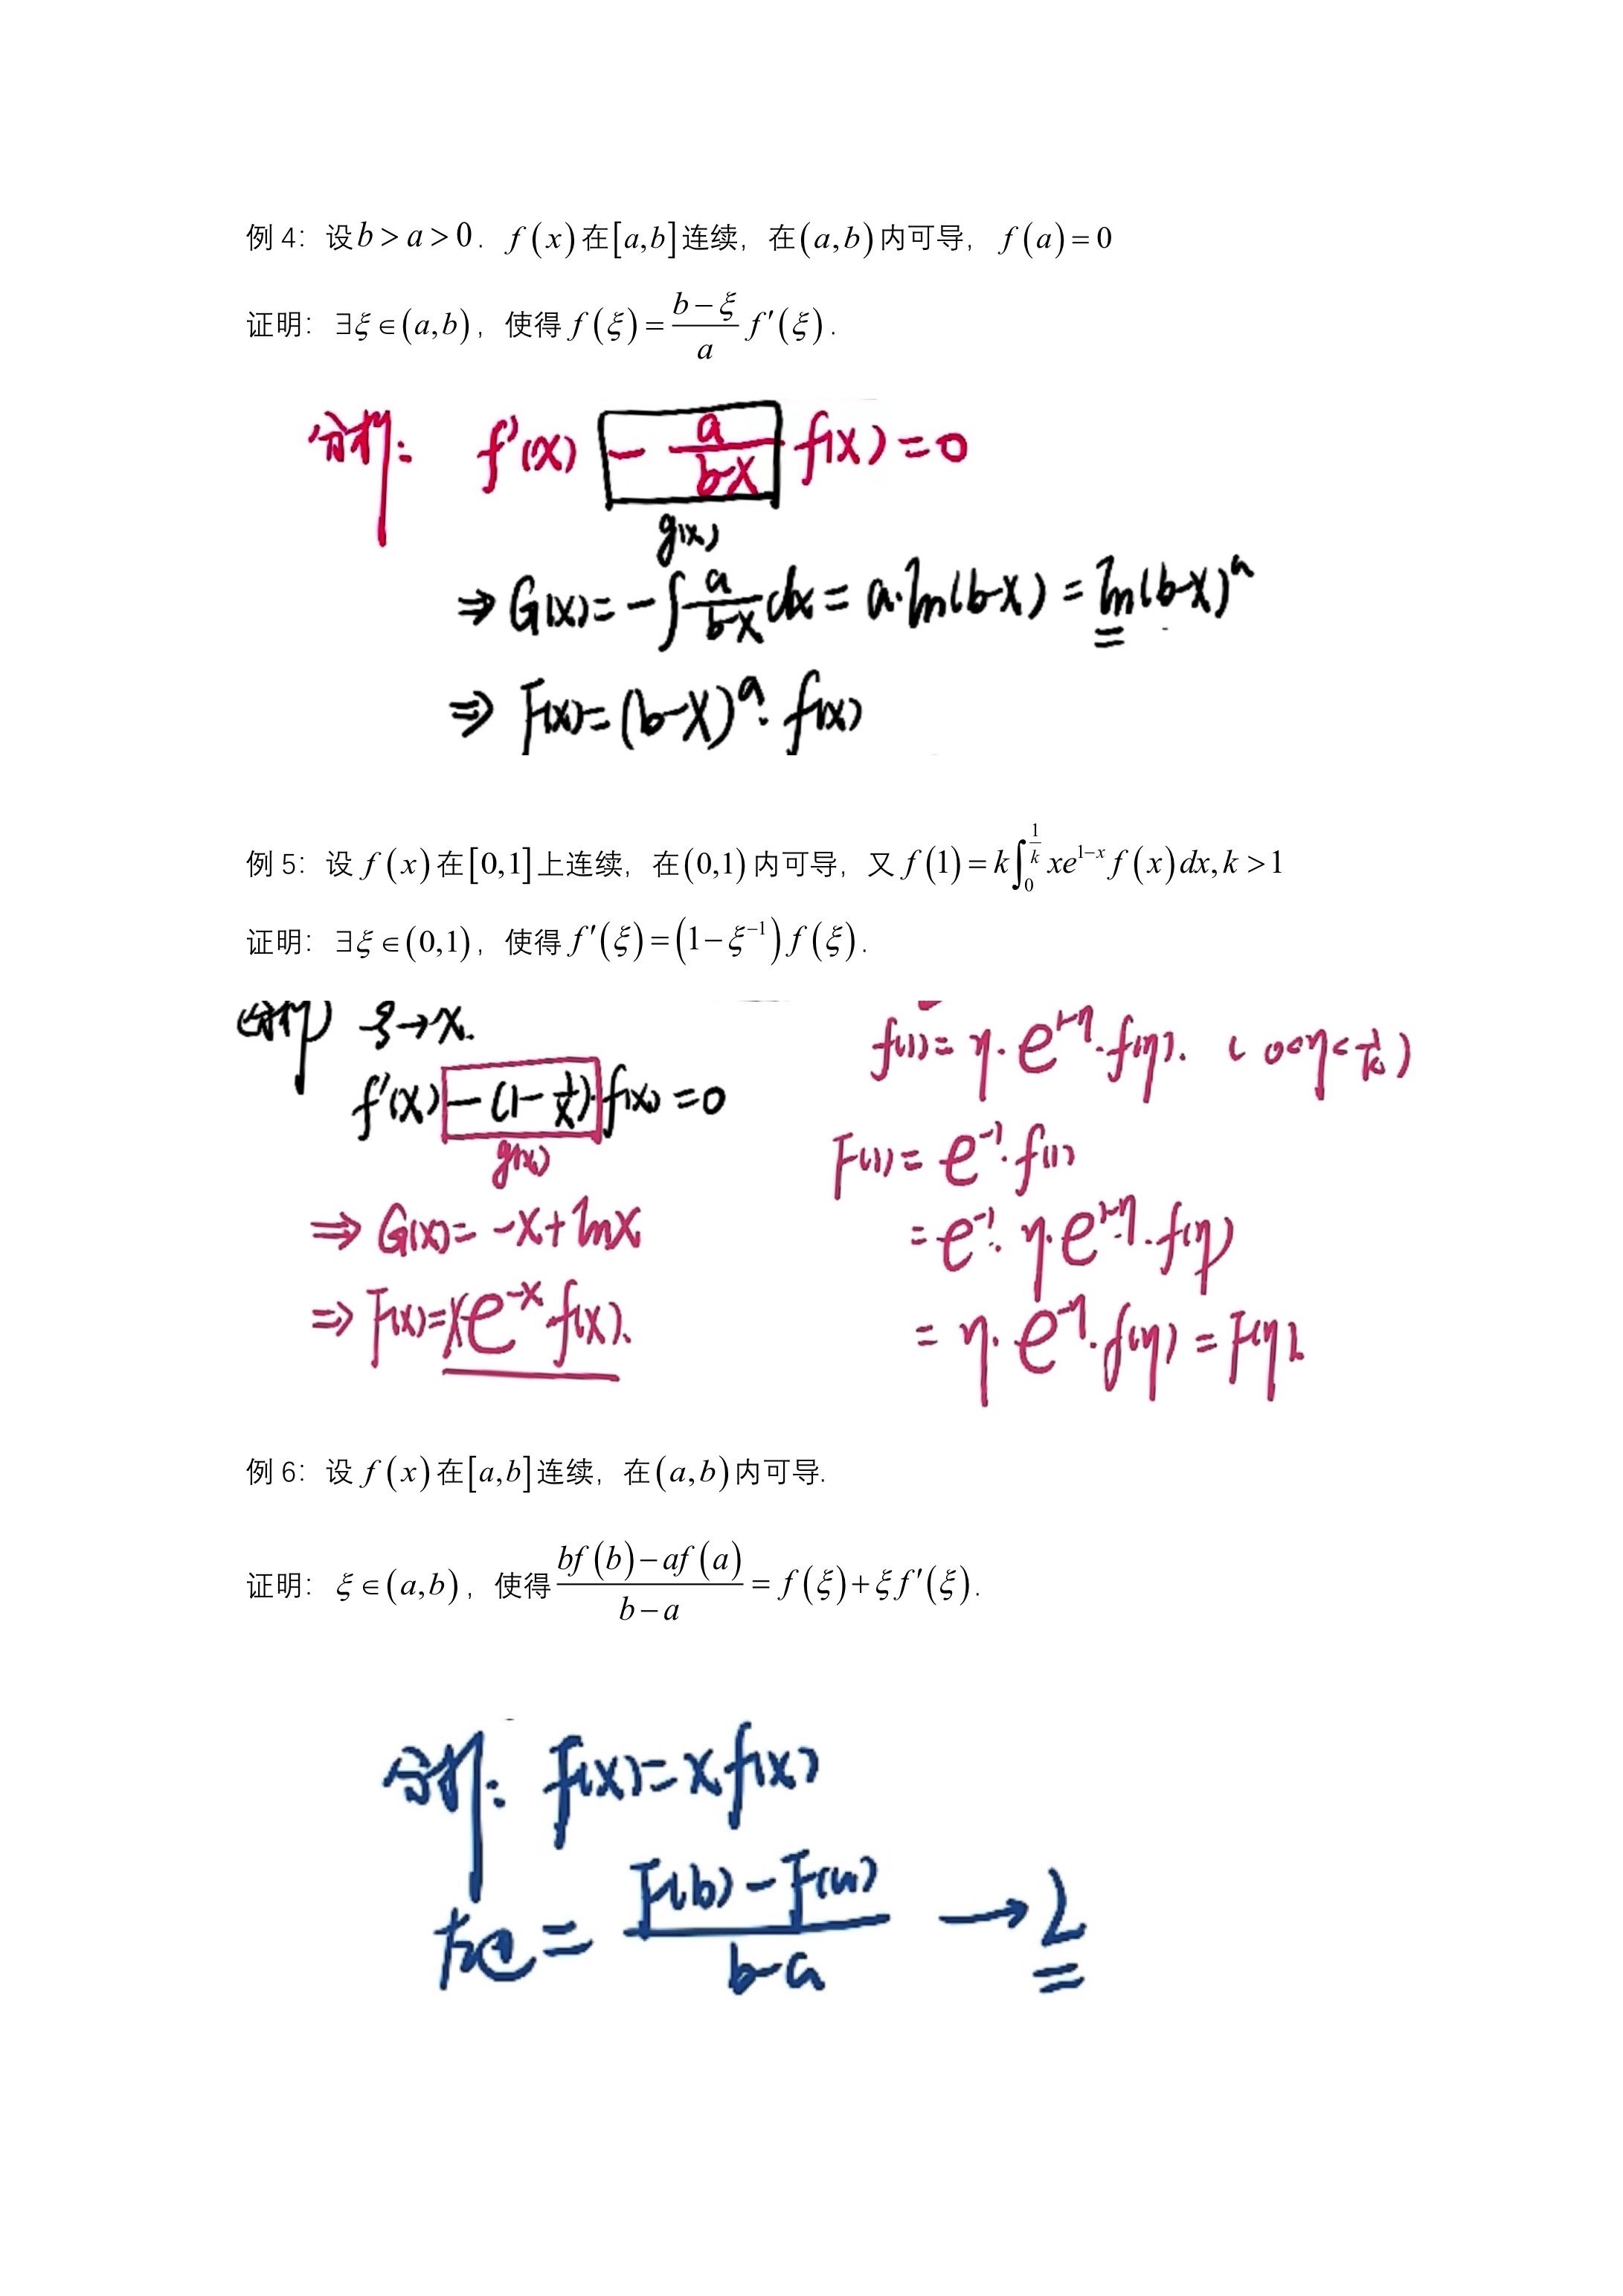 例 4：设 b > a > 0．f(x) 在 [a,b] 连续，在 (a,b) 内可导，f(a) = 0
证明：∃ξ ∈ (a,b)，使得 f(ξ) = \frac{b-ξ}{a} f′(ξ)．
分析： f′(x) - \frac{a}{b-x} f(x) = 0
g(x)
⇒ G(x) = -∫\frac{a}{b-x}dx = a·ln(b-x) = ln(b-x)^a
⇒ F(x) = (b-x)^a · f(x)
例 5：设 f(x) 在 [0,1] 上连续，在 (0,1) 内可导，又 f(1) = k∫_0^{\frac{1}{k}} xe^{1-x} f(x)dx, k > 1
证明：∃ξ ∈ (0,1)，使得 f′(ξ) = (1-ξ^{-1}) f(ξ)．
(分析) ξ→x.
f′(x) -(1-\frac{1}{x})·f(x) = 0
g(x)
⇒ G(x) = -x+lnx
⇒ F(x) = xe^{-x}·f(x).
f(1) = η·e^{1-η}·f(η). ( 0<η<\frac{1}{k} )
F(1) = e^{-1}·f(1)
= e^{-1}·η·e^{1-η}·f(η)
= η·e^{-η}·f(η) = F(η).
例 6：设 f(x) 在 [a,b] 连续，在 (a,b) 内可导.
证明：ξ ∈ (a,b)，使得 \frac{bf(b)-af(a)}{b-a} = f(ξ)+ξf′(ξ)．
分析：F(x) = x f(x)
左边 = \frac{F(b)-F(a)}{b-a} → L